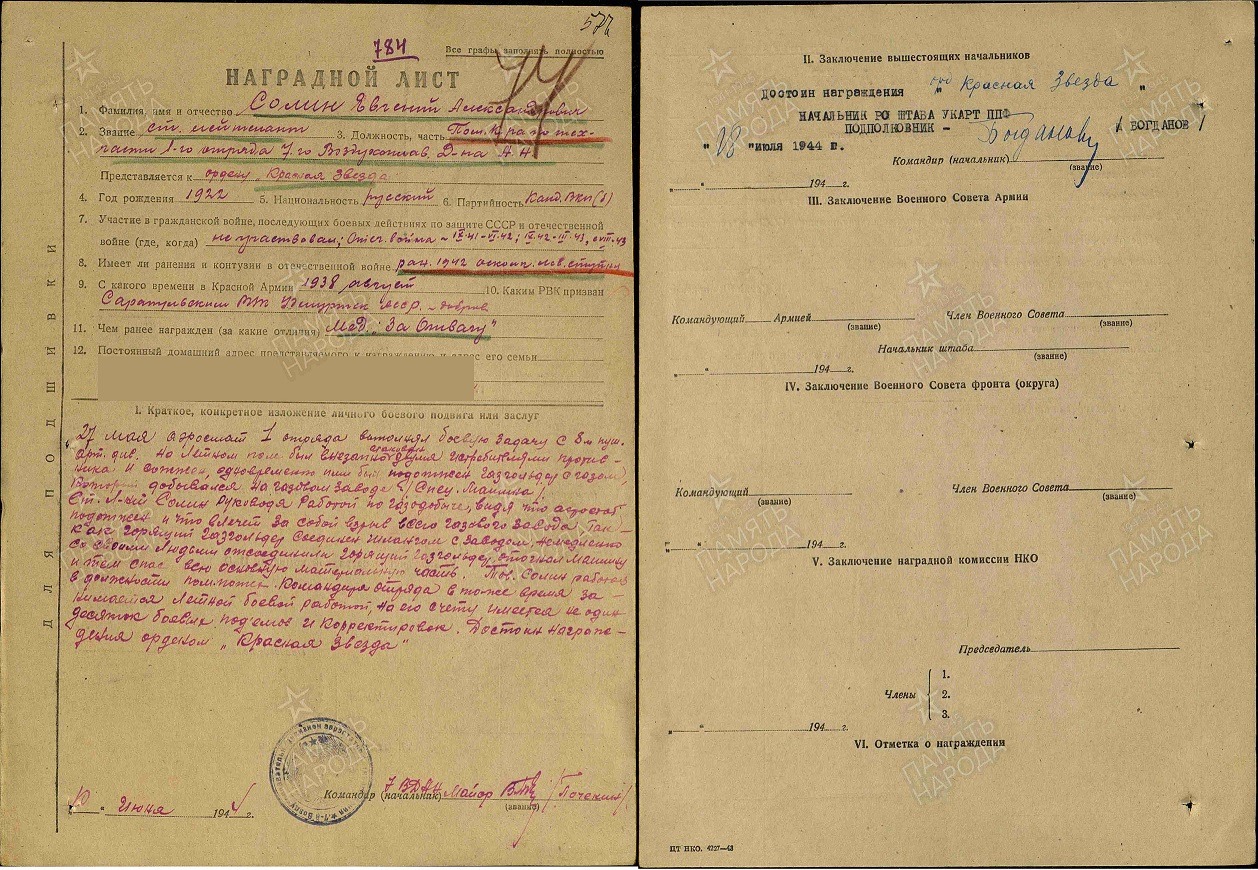 572
784
Все графы заполнять полностью
НАГРАДНОЙ ЛИСТ
1. Фамилия, имя и отчество Солин Евгений Александрович
2. Звание ст. лейтенант 3. Должность, часть Пом. К-ра по тех-
части 1-го отряда 7-го Воздухоплав. Д-на А.Н.
Представляется к ордену „Красная Звезда
4. Год рождения 1922 5. Национальность русский 6. Партийность Канд. ВКП(б)
7. Участие в гражданской войне, последующих боевых действиях по защите СССР и отечественной
войне (где, когда) не участвовал; Отеч. война – IX-41-VI-42; IX-42-III-43, с VIII-43
8. Имеет ли ранения и контузии в отечественной войне ран. 1942 оскол. лев. ступни
9. С какого времени в Красной Армии 1938 август 10. Каким РВК призван
Сарапульским РВК Удмуртск. АССР. – добров.
11. Чем ранее награжден (за какие отличия) Мед. „За Отвагу"
12. Постоянный домашний адрес представляемого к награждению и адрес его семьи
I. Краткое, конкретное изложение личного боевого подвига или заслуг
27 мая аэростат 1 отряда выполнял боевую задачу с 8-й пуш.
арт. див. На летном поле был внезапно атакован двумя истребителями против-
ника и сожжен, одновременно ими был подожжен газгольдер с газом,
который добывался на газовом заводе /Спец. Машина/.
Ст. Л-нт Солин руководя работой по газодобыче, видя что аэростат
подожжен и что влечет за собой взрыв всего газового завода так-
как горящий газгольдер соединен шлангом с заводом, немедленно
со своими людьми отсоединили горящий газгольдер, отогнал машину
и тем спас всю основную материальную часть. Тов. Солин работая
в должности пом. потех. Командира отряда в тоже время за-
нимается летной боевой работой, на его счету имеется не один
десяток боевых под'емов и корректировок. Достоин награж-
дения орденом „Красная Звезда"
7 ВДАН
Командир (начальник) Майор /Почекин/
(звание)
10 " Июня 1944 г.
ДЛЯ ПОДШИВКИ
II. Заключение вышестоящих начальников
Достоин награждения орд „Красная Звезда"
НАЧАЛЬНИК РО ШТАБА УКАРТ ППФ
ПОДПОЛКОВНИК – /БОГДАНОВ/
" "июля 1944 г.
Командир (начальник)
(звание)
" " 194 г.
III. Заключение Военного Совета Армии
Командующий Армией Член Военного Совета
(звание) (звание)
Начальник штаба
(звание)
" " 194 г.
IV. Заключение Военного Совета фронта (округа)
Командующий Член Военного Совета
(звание) (звание)
" " 194 г.
V. Заключение наградной комиссии НКО
Председатель
1.
Члены 2.
3.
" " 194 г.
VI. Отметка о награждении
ЦТ НКО. 4227—43
ПАМЯТЬ
НАРОДА